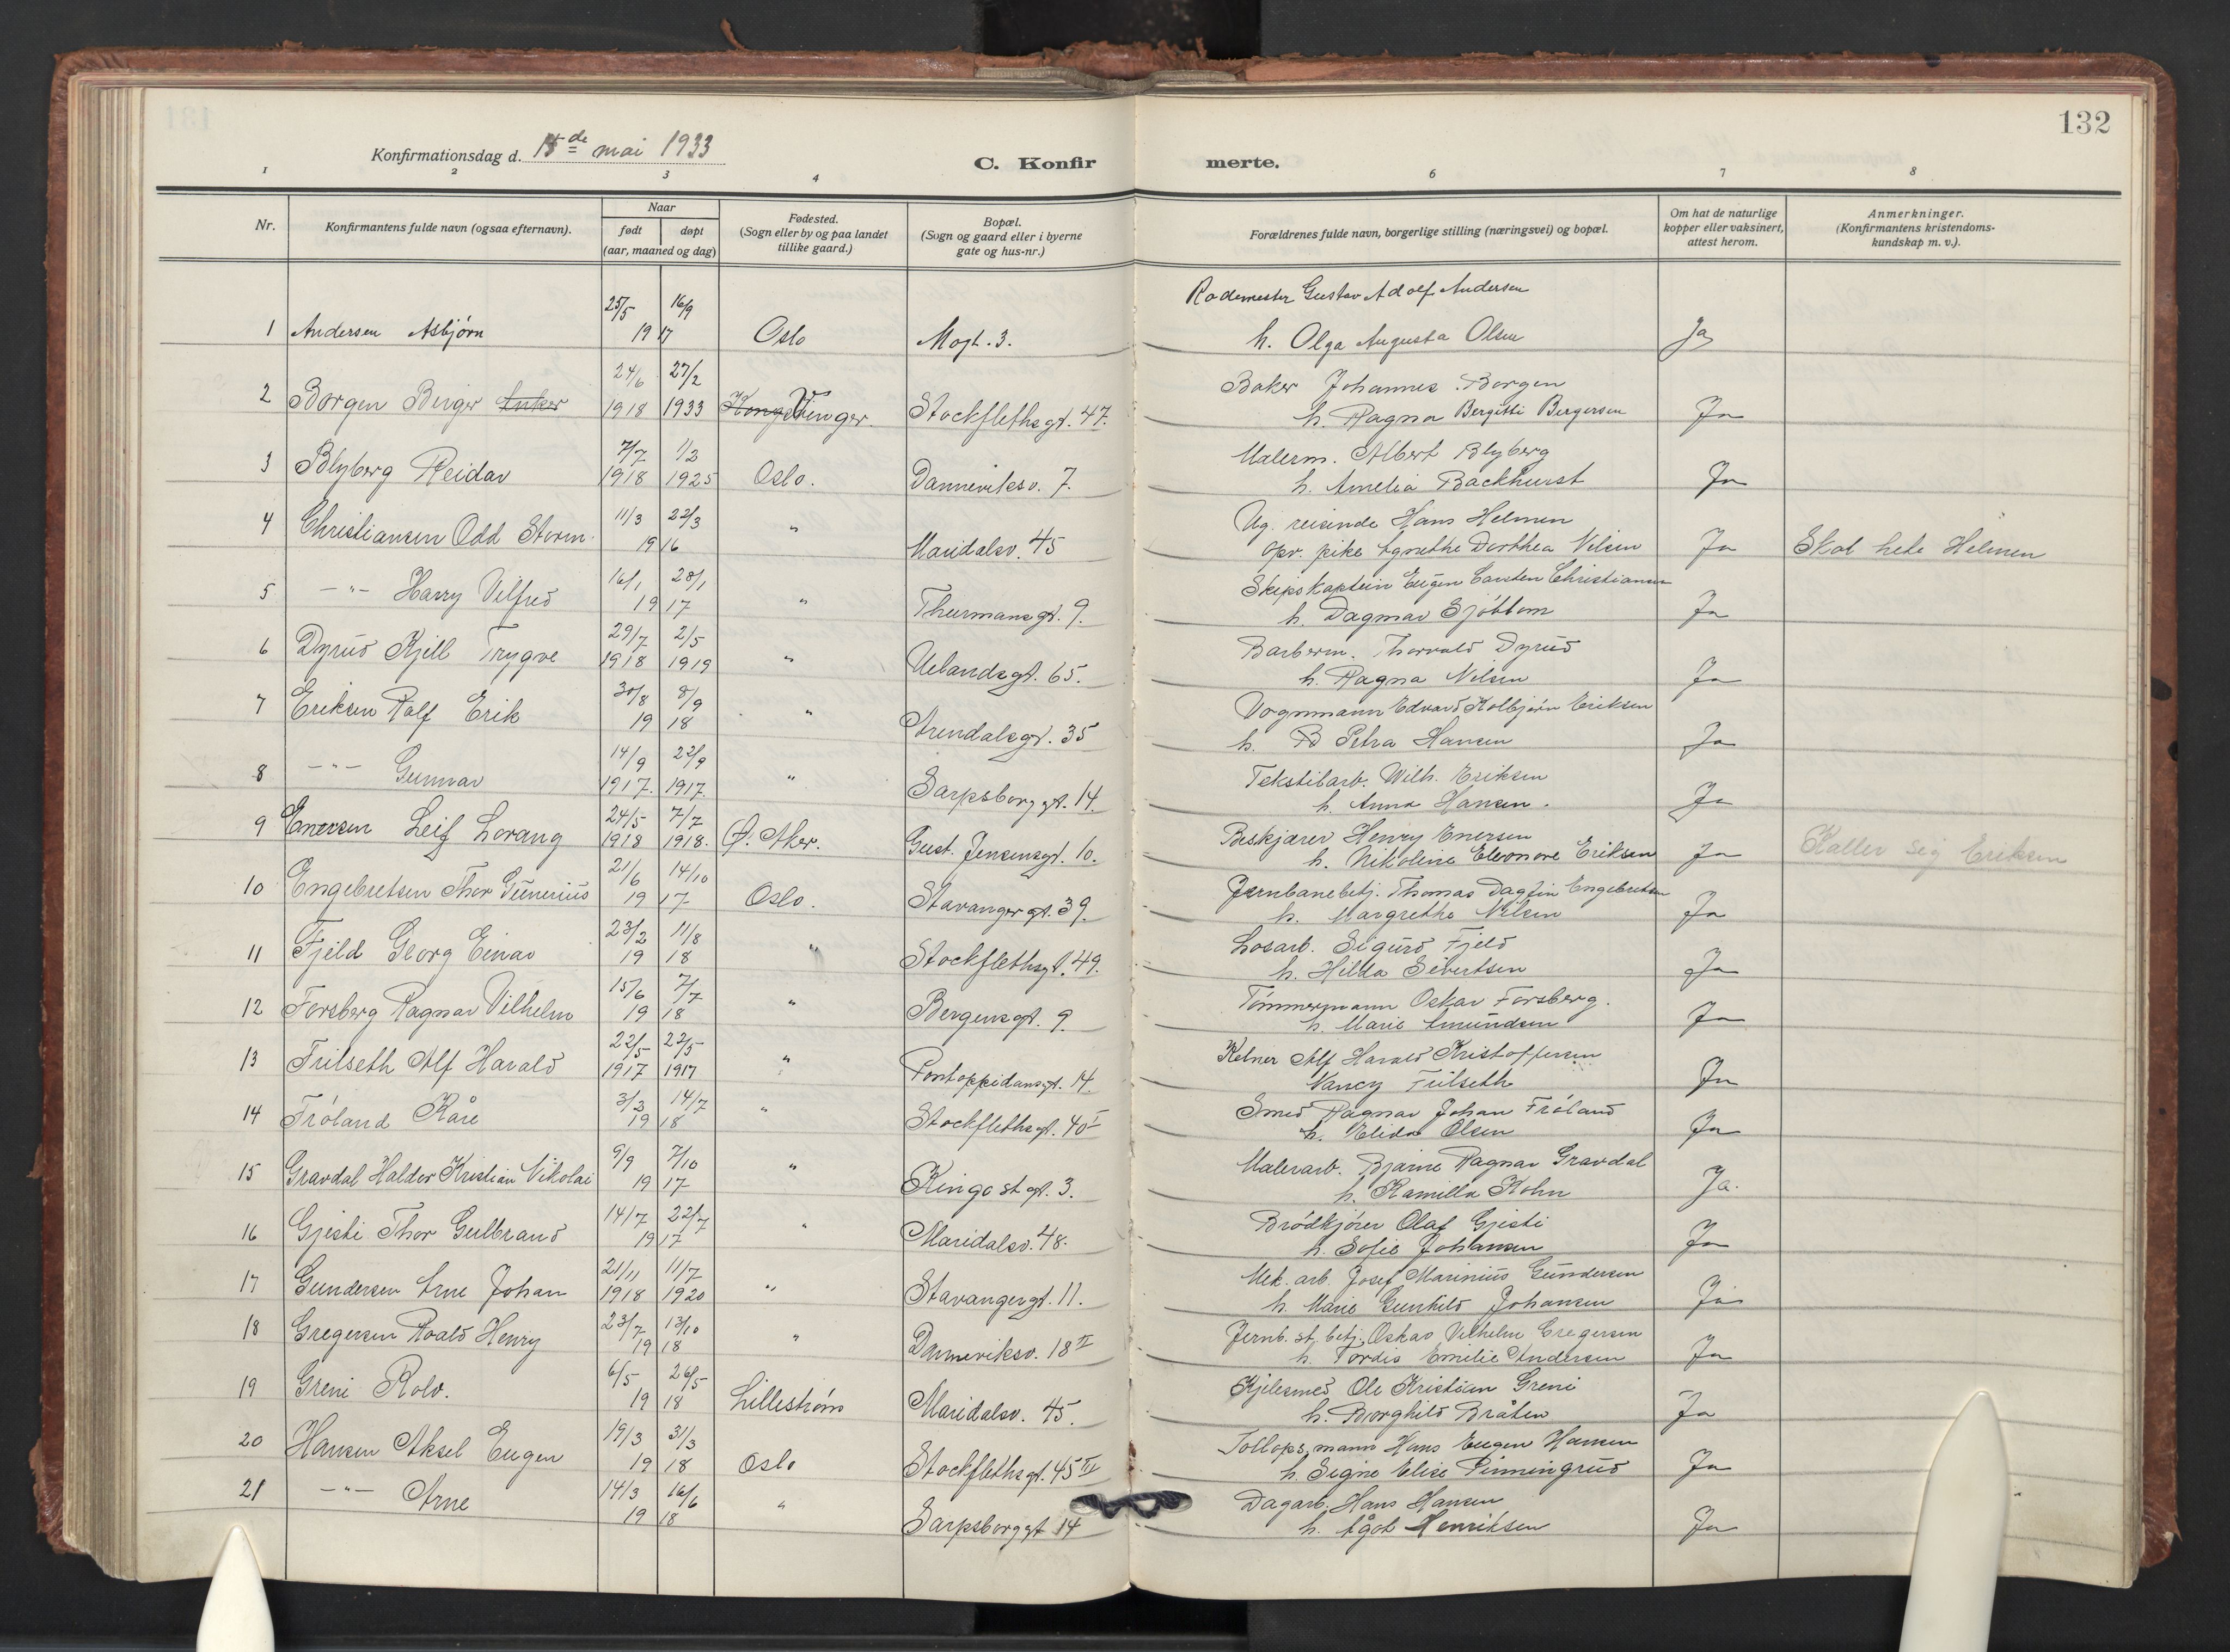 132
Konfirmationsdag d. 15de mai 1933
C. Konfirmerte.
1 2 3 4 6 7 8
Nr.
Konfirmantens fulde navn (ogsaa efternavn).
Naar
født døpt
(aar, maaned og dag)
Fødested.
(Sogn eller by og paa landet
tillike gaard.)
Bopæl.
(Sogn og gaard eller i byerne
gate og hus-nr.)
Forældrenes fulde navn, borgerlige stilling (næringsvei) og bopæl.
Om hat de naturlige
kopper eller vaksinert,
attest herom.
Anmerkninger.
(Konfirmantens kristendoms-
kundskap m. v.).
25/5 16/9 Rodemester Gustav Adolf Andersen
1 Andersen Asbjørn 19 17 Oslo Mogt. 3. h. Olga Augusta Olsen Ja
24/6 27/2 Baker Johannes Borgen
2 Borgen Birger Anker 1918 1933 Kongsvinger. Stockflethsgt. 47. h. Ragna Bergitti Bergersen Ja
7/7 1/2 Malerm. Albert Blyberg
3 Blyberg Reidar 1918 1925 Oslo. Danneviksv. 7. h. Amelia Backhurst Ja
11/3 22/3 Ug. reisende Hans Helmen
4 Christiansen Odd Storm 19 16 " Maridalsv. 45 opr. pike Agnethe Dorthea Nilsen Ja Skal hete Helmen
16/1 28/1 Skipskaptein Eugen Carsten Christiansen
5 -"- Harry Vilfred 19 17 " Thurmansgt. 9. h. Dagmar Sjöblom Ja
29/7 2/5 Barberm. Thorvald Dyrud
6 Dyrud Kjell Trygve 1918 1919 " Uelandsgt. 65. h. Ragna Nilsen Ja
30/8 8/9 Vognmann Edvard Kolbjørn Eriksen
7 Eriksen Rolf Erik 19 18 " Arendalsgt. 35 h. B Petra Hansen Ja
14/9 22/9 Tekstilarb. Wilh. Eriksen
8 -"- Gunnar 1917. 1917. " Sarpsborggt. 14. h. Anna Hansen. Ja
24/5 7/7 Beskjærer Henry Enersen
9 Enersen Leif Lorang 1918 1918. Ø. Aker. Gust. Jensensgt. 10. h. Nikoline Eleonore Eriksen Ja Kaller seg Eriksen
21/6 14/10 Jernbanebetj. Thomas Dagfin Engebretsen
10 Engebretsen Thor Gunerius 19 17 Oslo. Stavangergt. 39. h. Margrethe Nilsen Ja
23/2 11/8 Losarb. Sigurd Fjeld
11 Fjeld Georg Einar 19 18 " Stockflethsgt. 49. h. Hilda Sivertsen Ja
15/6 7/7 Tømmermann Oskar Forsberg.
12 Forsberg Ragnar Vilhelm 19 18 " Bergensgt. 9. h. Marie Amundsen Ja
22/5 22/5 Kelner Alf Harald Kristoffersen
13 Frilseth Alf Harald 1917 1917 " Pontoppidansgt. 14. Nancy Frilseth Ja
3/3 14/7 Smed Ragnar Johan Frøland
14 Frøland Kåre 19 18 " Stockflethsgt. 40 I h. Elida Olsen Ja
9/9 7/10 Malerarb. Bjarne Ragnar Gravdal
15 Gravdal Haldor Kristian Nikolai 19 17 " Kingostgt. 3. h. Kamilla Kohn Ja.
14/7 22/7 Brødkjører Olaf Gjesti
16 Gjesti Thor Gulbrand 19 17 " Maridalsv. 48. h. Sofie Johansen Ja
21/11 11/7 Mek. arb. Josef Marinius Gundersen
17 Gundersen Arne Johan 1918 1920 " Stavangergt. 11. h. Marie Gunhild Johansen Ja
23/7 13/10 Jernb. st. betj. Oskar Vilhelm Gregersen
18 Gregersen Roald Henry 19 18 " Danneviksv. 18 II h. Tordis Emilie Andersen Ja
6/5 26/5 Kjelesmed Ole Kristian Greni
19 Greni Rolv. 19 18 Lillestrøm Maridalsv. 45. h. Borghild Bråten Ja
19/3 31/3 Tollops.mann Hans Eugen Hansen
20 Hansen Aksel Eugen 19 18 Oslo Stockflethsgt. 45 III h. Signe Elise Pinningrud Ja
14/3 16/6 Dagarb. Hans Hansen
21 -"- Arne 19 18 " Sarpsborggt 14 h. Ågot Henriksen Ja